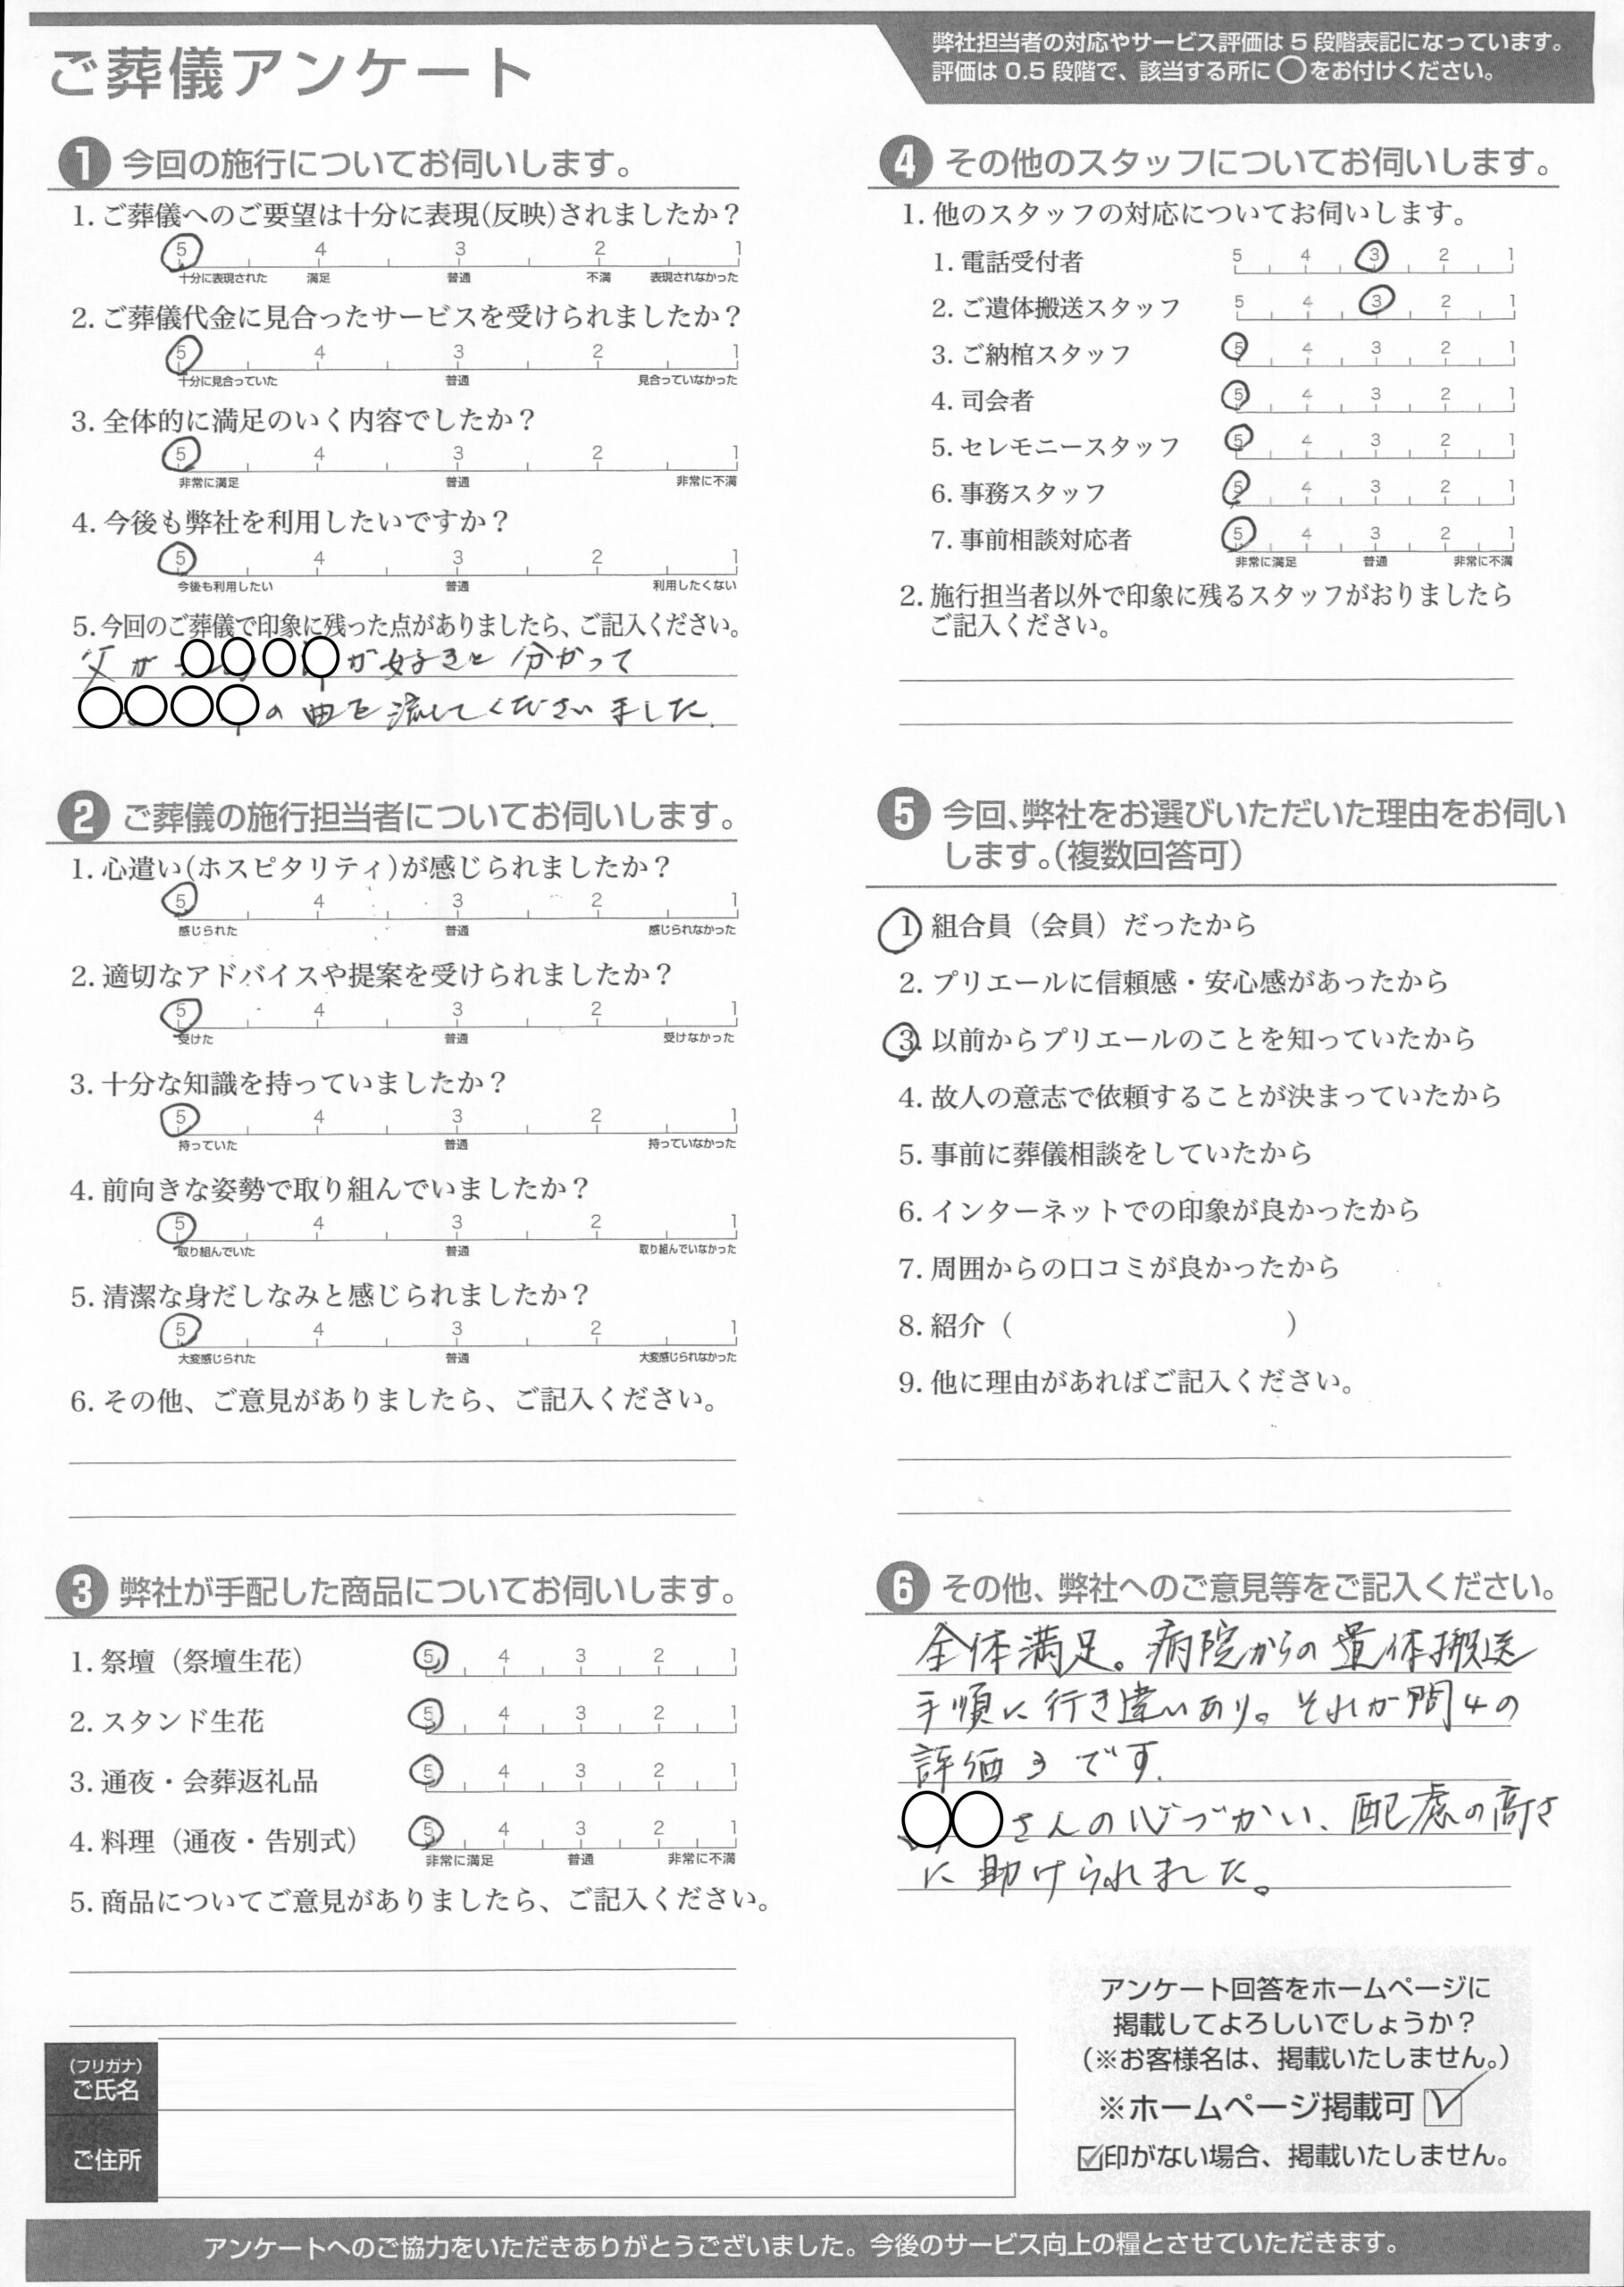 ご葬儀アンケート
弊社担当者の対応やサービス評価は5段階表記になっています。
評価は0.5段階で、該当する所に○をお付けください。
1 今回の施行についてお伺いします。
1. ご葬儀へのご要望は十分に表現(反映)されましたか？
5 4 3 2 1
十分に表現された 満足 普通 不満 表現されなかった
2. ご葬儀代金に見合ったサービスを受けられましたか？
5 4 3 2 1
十分に見合っていた 普通 見合っていなかった
3. 全体的に満足のいく内容でしたか？
5 4 3 2 1
非常に満足 普通 非常に不満
4. 今後も弊社を利用したいですか？
5 4 3 2 1
今後も利用したい 普通 利用したくない
5. 今回のご葬儀で印象に残った点がありましたら、ご記入ください。
父が○○○○が好きと分かって
○○○○の曲を流してくださいました.
2 ご葬儀の施行担当者についてお伺いします。
1. 心遣い(ホスピタリティ)が感じられましたか？
5 4 3 2 1
感じられた 普通 感じられなかった
2. 適切なアドバイスや提案を受けられましたか？
5 4 3 2 1
受けた 普通 受けなかった
3. 十分な知識を持っていましたか？
5 4 3 2 1
持っていた 普通 持っていなかった
4. 前向きな姿勢で取り組んでいましたか？
5 4 3 2 1
取り組んでいた 普通 取り組んでいなかった
5. 清潔な身だしなみと感じられましたか？
5 4 3 2 1
大変感じられた 普通 大変感じられなかった
6. その他、ご意見がありましたら、ご記入ください。
3 弊社が手配した商品についてお伺いします。
1. 祭壇（祭壇生花） 5 4 3 2 1
2. スタンド生花 5 4 3 2 1
3. 通夜・会葬返礼品 5 4 3 2 1
4. 料理（通夜・告別式） 5 4 3 2 1
非常に満足 普通 非常に不満
5. 商品についてご意見がありましたら、ご記入ください。
4 その他のスタッフについてお伺いします。
1. 他のスタッフの対応についてお伺いします。
1. 電話受付者 5 4 3 2 1
2. ご遺体搬送スタッフ 5 4 3 2 1
3. ご納棺スタッフ 5 4 3 2 1
4. 司会者 5 4 3 2 1
5. セレモニースタッフ 5 4 3 2 1
6. 事務スタッフ 5 4 3 2 1
7. 事前相談対応者 5 4 3 2 1
非常に満足 普通 非常に不満
2. 施行担当者以外で印象に残るスタッフがおりましたら
ご記入ください。
5 今回、弊社をお選びいただいた理由をお伺い
します。(複数回答可)
1 組合員（会員）だったから
2. プリエールに信頼感・安心感があったから
3. 以前からプリエールのことを知っていたから
4. 故人の意志で依頼することが決まっていたから
5. 事前に葬儀相談をしていたから
6. インターネットでの印象が良かったから
7. 周囲からの口コミが良かったから
8. 紹介（ ）
9. 他に理由があればご記入ください。
6 その他、弊社へのご意見等をご記入ください。
全体満足。病院からの遺体搬送
手順に行き違いあり。それが問4の
評価3です.
○○さんの心づかい、配慮の高さ
に助けられました。
アンケート回答をホームページに
掲載してよろしいでしょうか？
(※お客様名は、掲載いたしません。)
※ホームページ掲載可
印がない場合、掲載いたしません。
(フリガナ)
ご氏名
ご住所
アンケートへのご協力をいただきありがとうございました。今後のサービス向上の糧とさせていただきます。